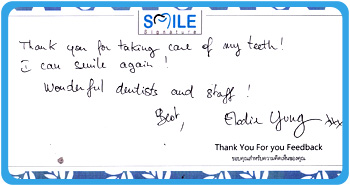 SMILE
Signature
Thank you for taking care of my teeth!
I can smile again!
Wonderful dentists and staff!
Best,
Elodie Yung xxx
Thank You For you Feedback
ขอบคุณสำหรับความคิดเห็นของคุณ